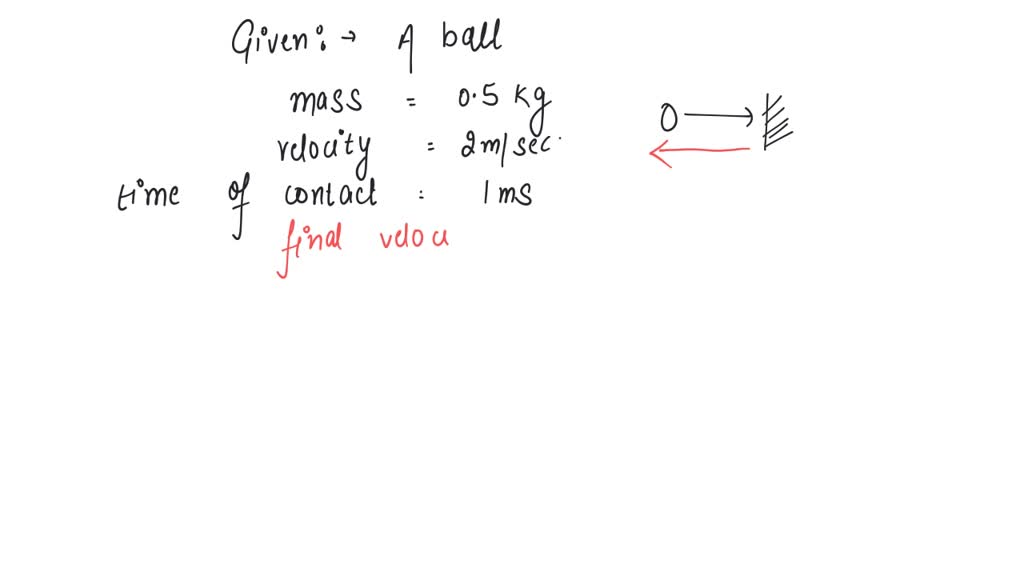 Given:→ A ball
mass = 0.5 kg
velocity = 2m/sec.
time of contact = 1 ms
final velou